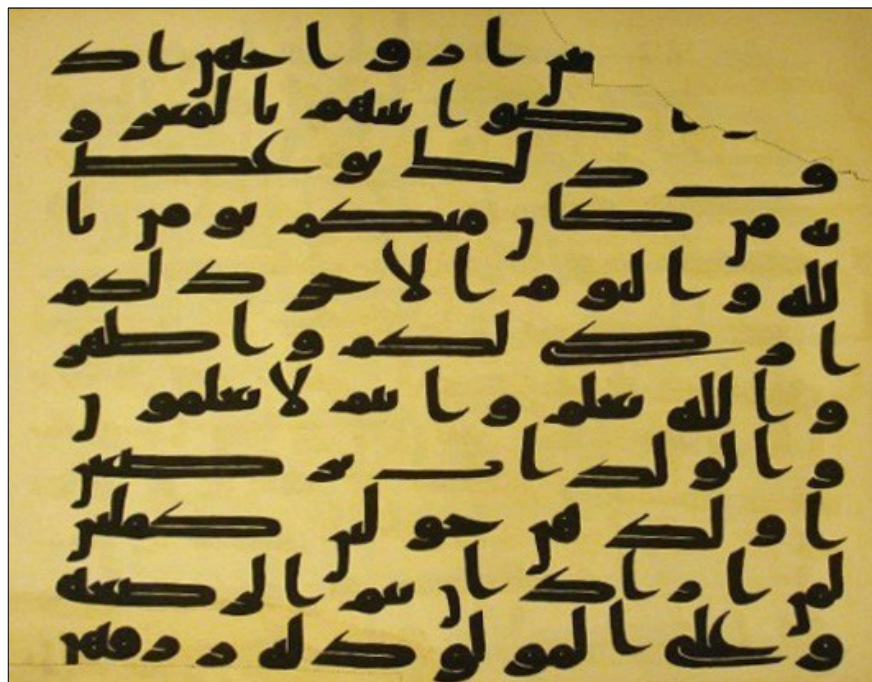 ن ازوجهن اذ
ا ضوا بينهم بالمعرو
ف ذلك يوعظ
به من كان منكم يومن با
لله واليوم الاخر ذلكم
ازكى لكم واطهر
والله يعلم وانتم لا تعلمون
والولدات يرضعن
اولدهن حولين كملين
لمن اراد ان يتم الرضعه
وعلى المولود له رزقهن